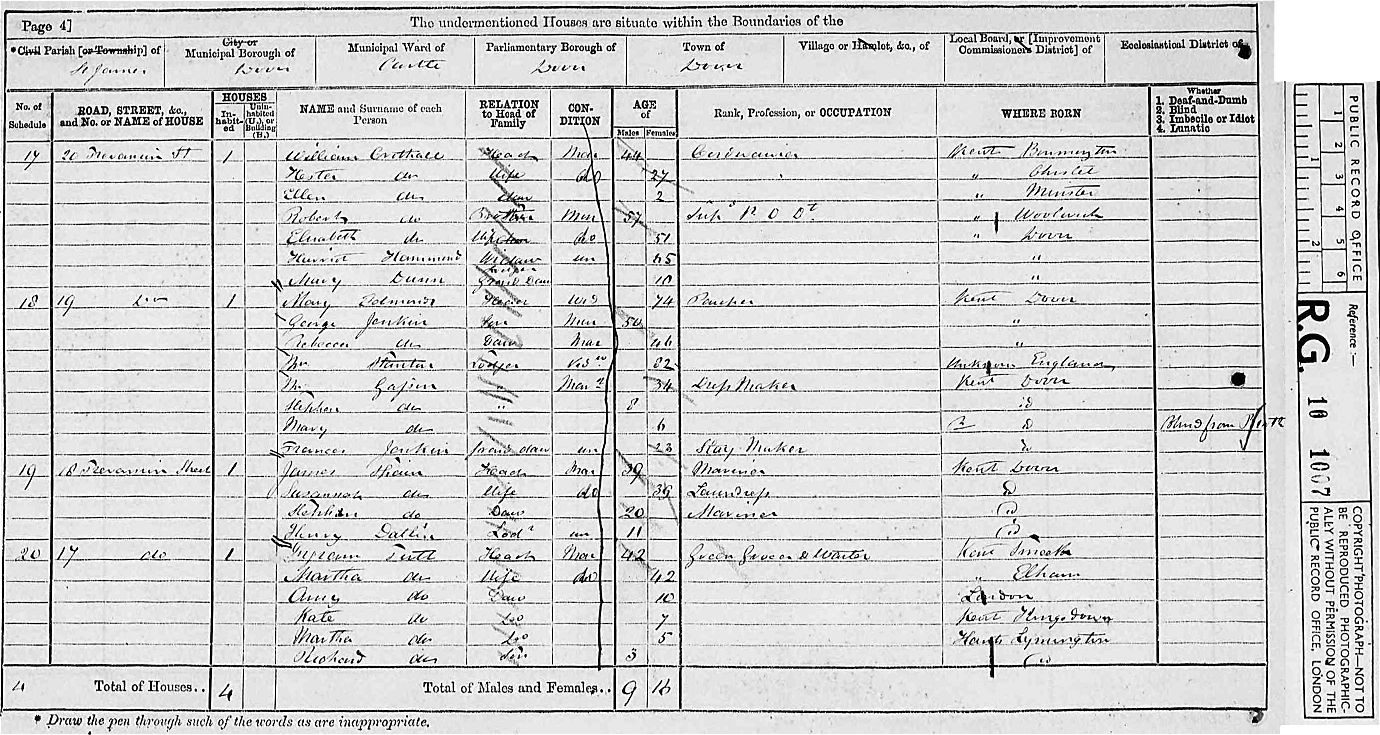 Page 4]
The undermentioned Houses are situate within the Boundaries of the
*Civil Parish [or Township] of
City or Municipal Borough of
Municipal Ward of
Parliamentary Borough of
Town of
Village or Hamlet, &c., of
Local Board, or [Improvement Commissioners District] of
Ecclesiastical District of
St James
Dover
Castle
Dover
Dover
No. of Schedule
ROAD, STREET, &c., and No. or NAME of HOUSE
HOUSES
Inhabited
Uninhabited (U.), or Building (B.)
NAME and Surname of each Person
RELATION to Head of Family
CONDITION
AGE of
Males
Females
Rank, Profession, or OCCUPATION
WHERE BORN
Whether
1. Deaf-and-Dumb
2. Blind
3. Imbecile or Idiot
4. Lunatic
17 20 St 1 William Head Mar 44 Cordwainer Kent
Hester do Wife do 27 " Chislet
Ellen do daur 2 " Minster
Robert do Brother Mar 57 " Woolwich
Elizabeth do do 51 " Dover
Harriet Hammond un 65 "
Mary Dunn Grand Daur 10 "
18 19 do 1 Mary Head Wid 74 Pauper Kent Dover
George Jenkin Son Mar 50 "
Rebecca do Daur Mar 46 "
Mr Stanton Lodger 82 Unknown England
Mr " Mar 34 Dress Maker Kent Dover
Stephen do " 8 do
Mary do 6 do Blind from Birth
Frances Jenkin grand daur un 23 Stay Maker do
19 18 Street 1 James Head Mar 39 Mariner Kent Dover
Savannah do Wife do 39 Laundress do
Stephen do 20 Mariner do
Henry Lod un 11 do
20 17 do 1 Head Mar 42 Green Grocer & Waiter Kent
Martha do Wife do 42 " Elham
Amy do Daur 10 London
Kate do do 7 Kent Kingsdown
Martha do do 5 Hants Lymington
Richard do Son 3 do
4 Total of Houses.. 4 Total of Males and Females.. 9 16
* Draw the pen through such of the words as are inappropriate.
PUBLIC RECORD OFFICE
1 2 3 4 5 6
1 2
Reference :—
R.G. 10 1007
COPYRIGHT PHOTOGRAPH—NOT TO
BE REPRODUCED PHOTOGRAPHIC-
ALLY WITHOUT PERMISSION OF THE
PUBLIC RECORD OFFICE, LONDON